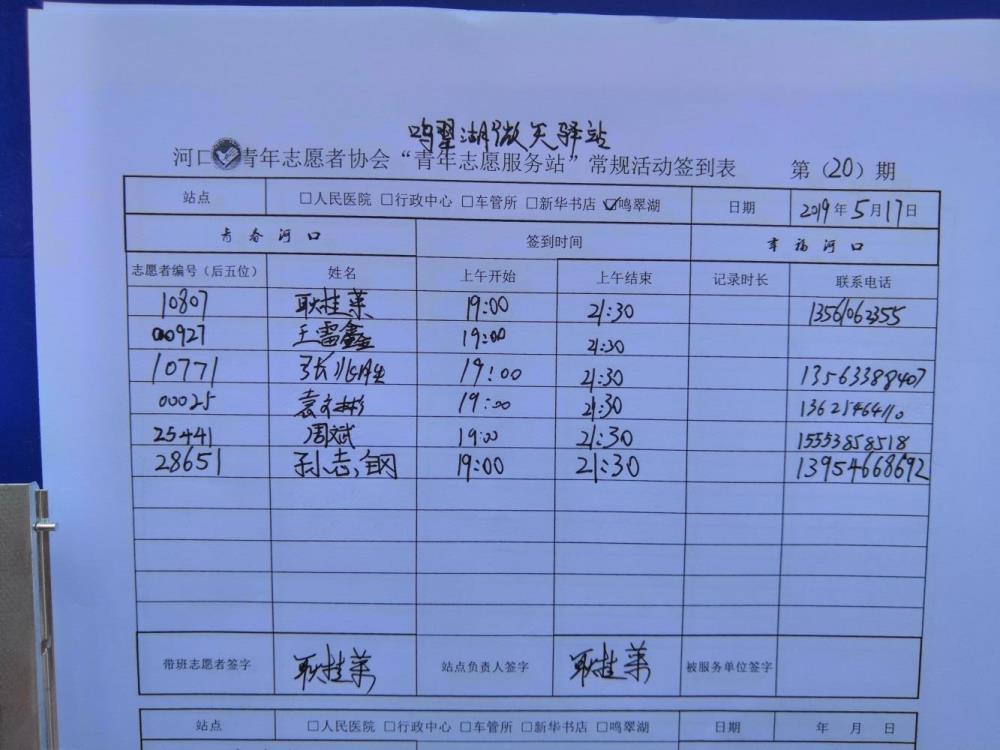 鸣翠湖微笑驿站
河口青年志愿者协会“青年志愿服务站”常规活动签到表 第（20）期
站点 □人民医院 □行政中心 □车管所 □新华书店 ☑鸣翠湖 日期 2019年5月17日
青春河口 签到时间 幸福河口
志愿者编号（后五位） 姓名 上午开始 上午结束 记录时长 联系电话
10807 耿桂菜 19:00 21:30 13561062355
00927 王雷鑫 19:00 21:30
10771 张兆胜 19:00 21:30 13563388407
00025 袁文彬 19:00 21:30 13625464110
25441 周斌 19:00 21:30 15553858518
28651 孙志钢 19:00 21:30 13954668692
带班志愿者签字 耿桂菜 站点负责人签字 耿桂菜 被服务单位签字
站点 □人民医院 □行政中心 □车管所 □新华书店 □鸣翠湖 日期 年 月 日